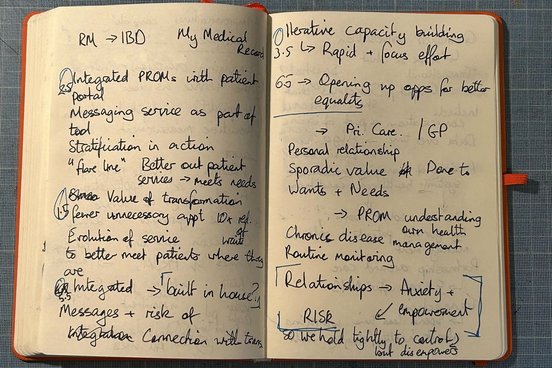 RM → IBD My Medical
Record
Integrated PROMs with patient
portal
Messaging service as part of
tool
Stratification in action
"flare line" Better out patient
services → meets needs
Value of transformation
1.5 fewer unnecessary appt
Evolution of service
to better meet patients where they
are
Integrated → "built in house?"
Messages + risk of
Connection with
Iterative capacity building
3.5 ↳ Rapid + focus effort
→ Opening up apps for better
equalities
→ Pri. Care. / GP
Personal relationship
Sporadic value Done to
Wants + Needs
→ PROM understanding
own health
Chronic disease management
Routine monitoring
Relationships → Anxiety +
↙ empowerment
RISK
so we hold tightly to control)
but disempowers